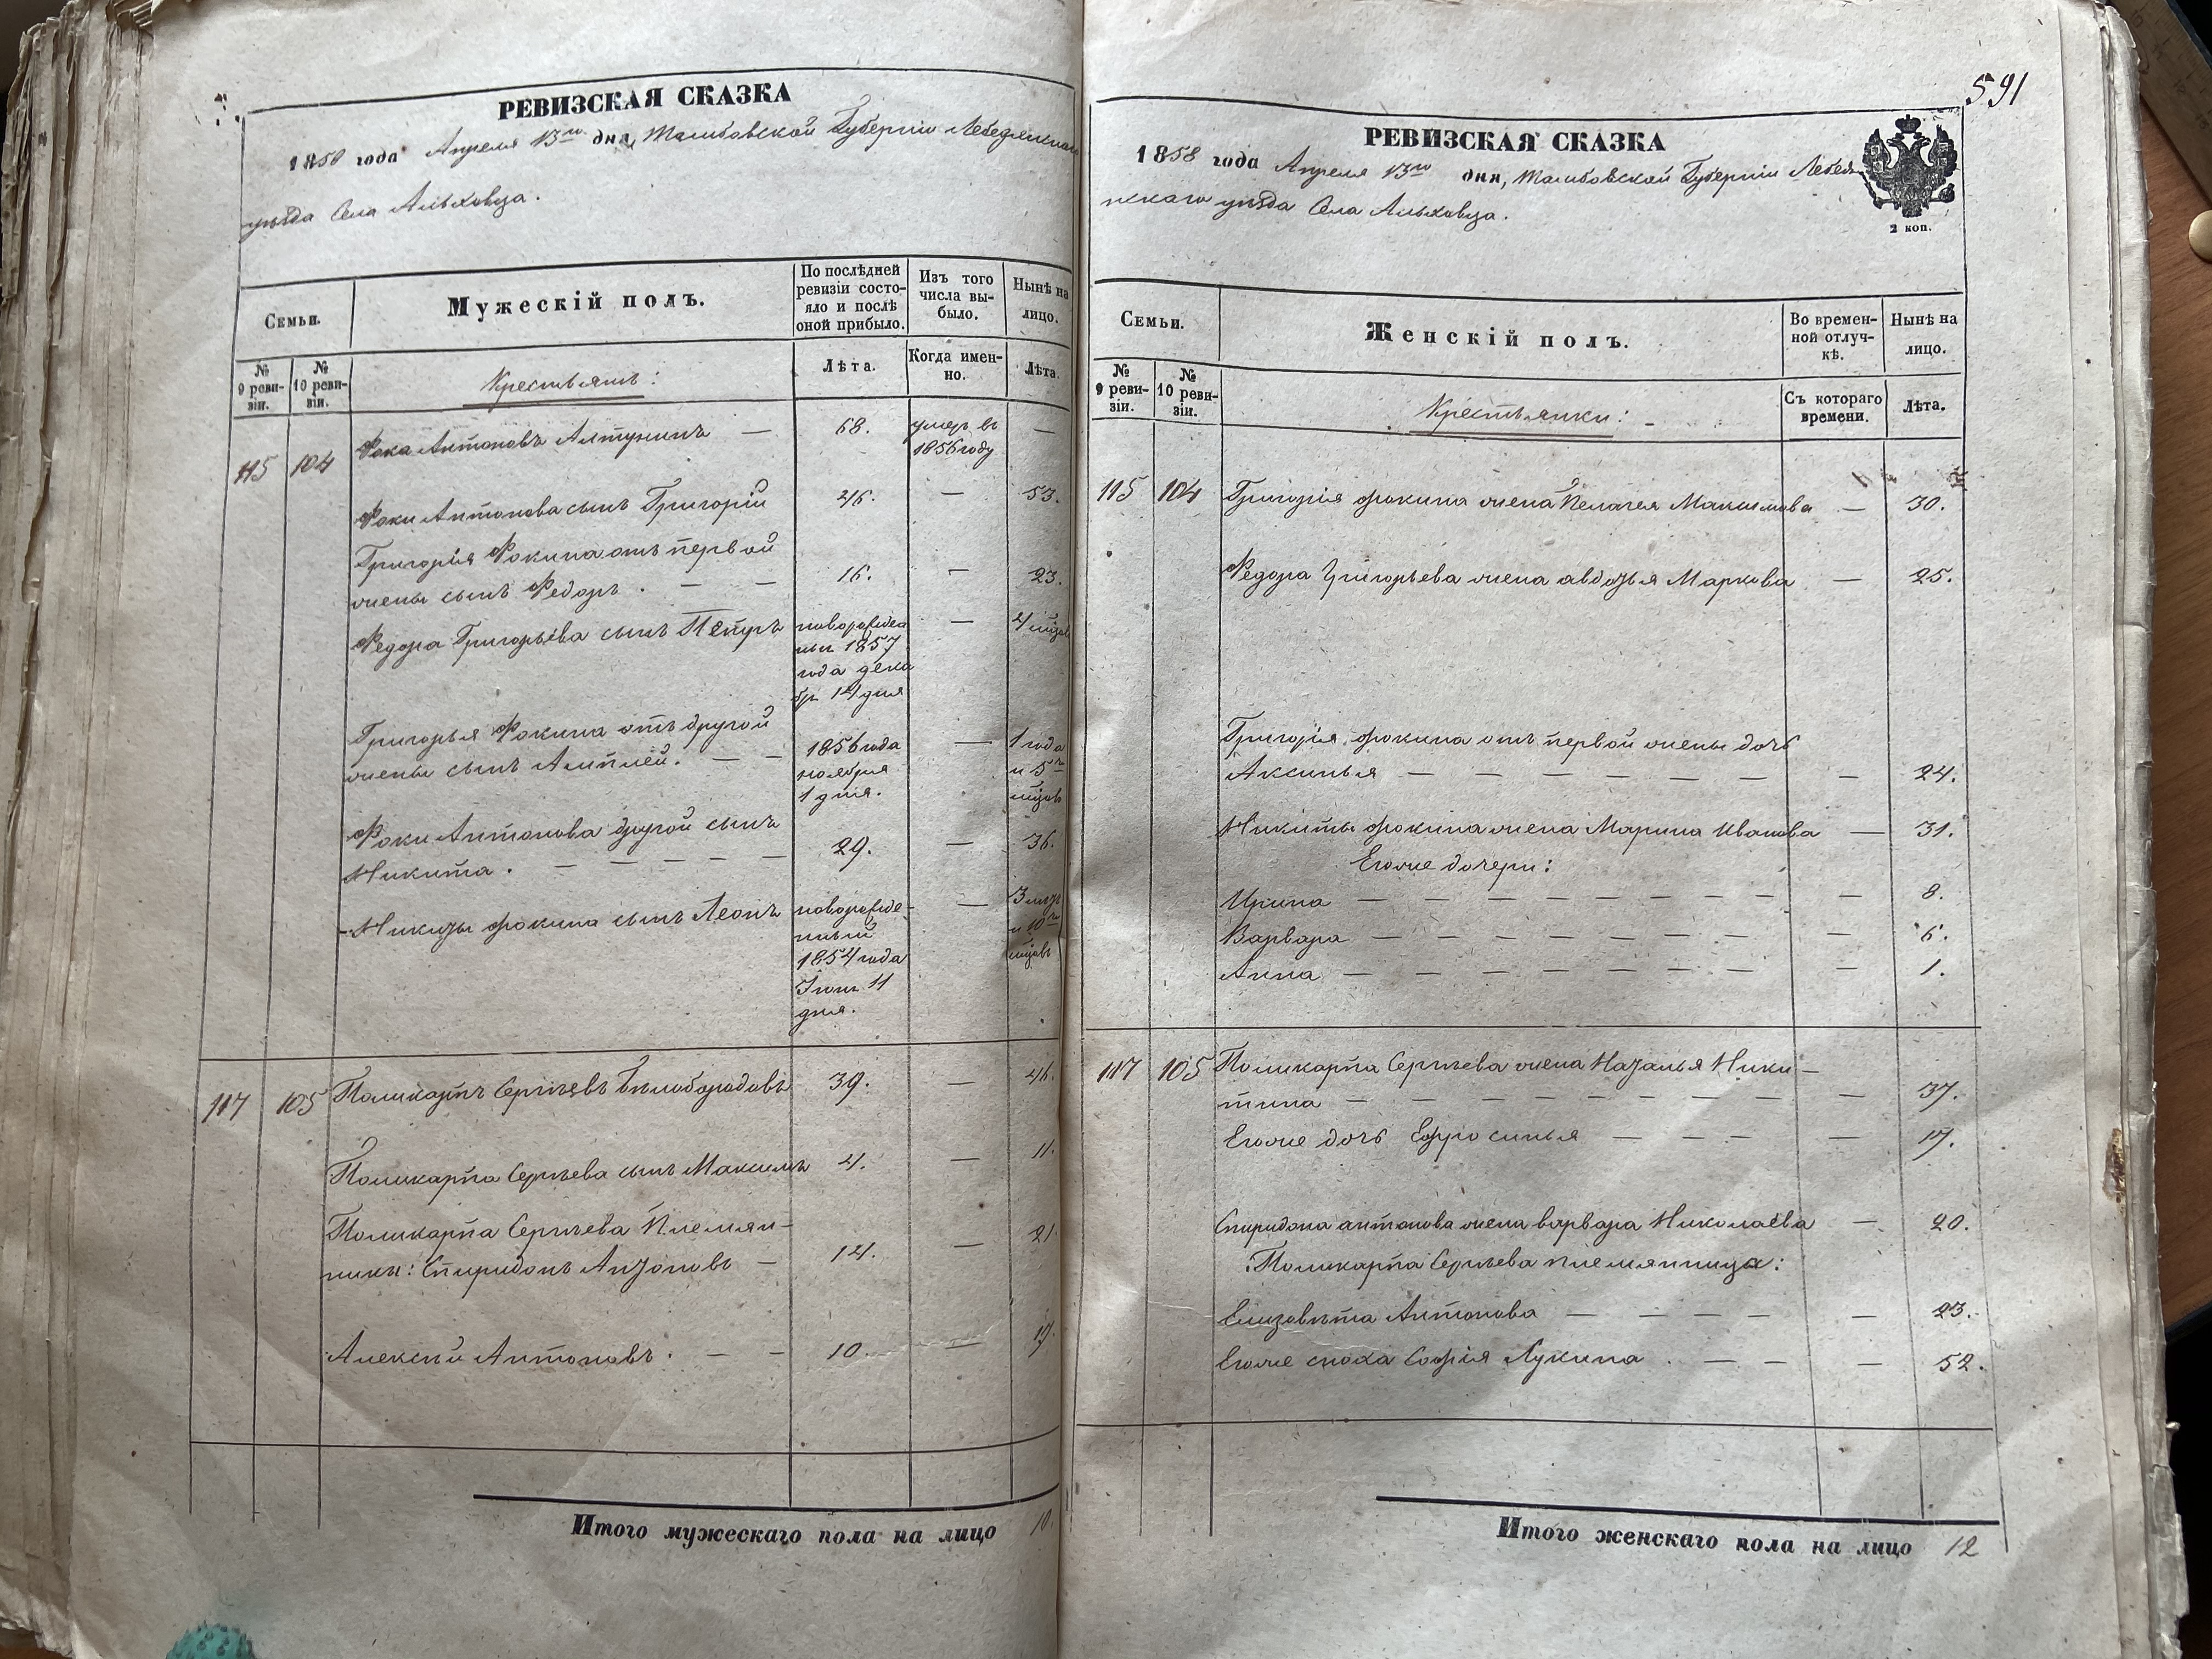 РЕВИЗСКАЯ СКАЗКА
1858 года Апреля 13го дня, Тамбовской Губерніи Лебедянскаго
уѣзда Села Альховца.
Семьи.
Мужескій полъ.
По послѣдней
ревизіи состо-
яло и послѣ
оной прибыло.
Изъ того
числа вы-
было.
Нынѣ на
лицо.
№
9 реви-
зіи.
№
10 реви-
зіи.
Крестьянъ:
Лѣта.
Когда имен-
но.
Лѣта.
115 104 Фока Антоновъ Алтунинъ — 68. умеръ въ 1856 году —
Фоки Антонова сынъ Григорій 46. — 53.
Григорія Фокина отъ первой
жены сынъ Федоръ. — — 16. — 23.
Федора Григорьева сынъ Петръ — 4 мцов
новорожден
ны 1857
года дека
бр 14 дня
Григорья Фокина отъ другой
жены сынъ Амплей. — —
1856 года
ноября
1 дня.
— 1 года
и 5ть
мцовъ
Фоки Антонова другой сынъ
Никита. — — — — — 29. — 36.
Никиты фокина сынъ Леонъ
новорожде-
нный
1854 года
Іюнь 11
дня.
— 3 лѣтъ
и 10ть
мцовъ
117 105 Поликарпъ Сергѣевъ Бѣлобородовъ 39. — 46.
Поликарпа Сергѣева сынъ Максимъ 4. — 11.
Поликарпа Сергѣева Племян-
ники: Спиридонъ Антоновъ — 14. — 21.
Алексѣй Антоновъ. — — 10. — 17.
Итого мужескаго пола на лицо 10.
591
РЕВИЗСКАЯ СКАЗКА
1858 года Апреля 13го дня, Тамбовской Губерніи Лебедя
нскаго уѣзда Села Альховца.
2 коп.
Семьи.
Женскій полъ.
Во времен-
ной отлуч-
кѣ.
Нынѣ на
лицо.
№
9 реви-
зіи.
№
10 реви-
зіи.
Крестьянки: -
Съ котораго
времени.
Лѣта.
115 104 Григорія фокина жена Пелагея Максимова — 30.
Федора Григорьева жена авдотья Маркова — 25.
Григорія фокина отъ первой жены дочь
Аксинья — — — — — — — — 24.
Никиты фокина жена Марина Иванова — 31.
Егоже дочери:
Ирина — — — — — — — — 8.
Варвара — — — — — — — — 6.
Анна — — — — — — — — 1.
117 105 Поликарпа Сергѣева жена Наталья Ники-
тина — — — — — — — — 37.
Егоже дочь Ефросинья — — — — 17.
Спиридона антонова жена варвара Николаева — 20.
Поликарпа Сергѣева племянница:
Елизовѣта Антонова — — — — — 23.
Егоже сноха Софія Лукина. — — — — 52.
Итого женскаго пола на лицо 12